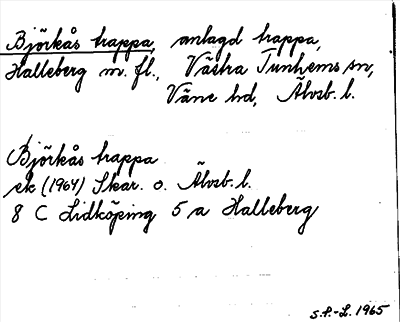 Björkås trappa, anlagd trappa,
Halleberg m. fl., Västra Tunhems sn,
Väne hd, Älvsb. l.
Björkås trappa
ek (1964) Skar. o. Älvsb. l.
8 C Lidköping 5 a Halleberg
S.F.-L. 1965